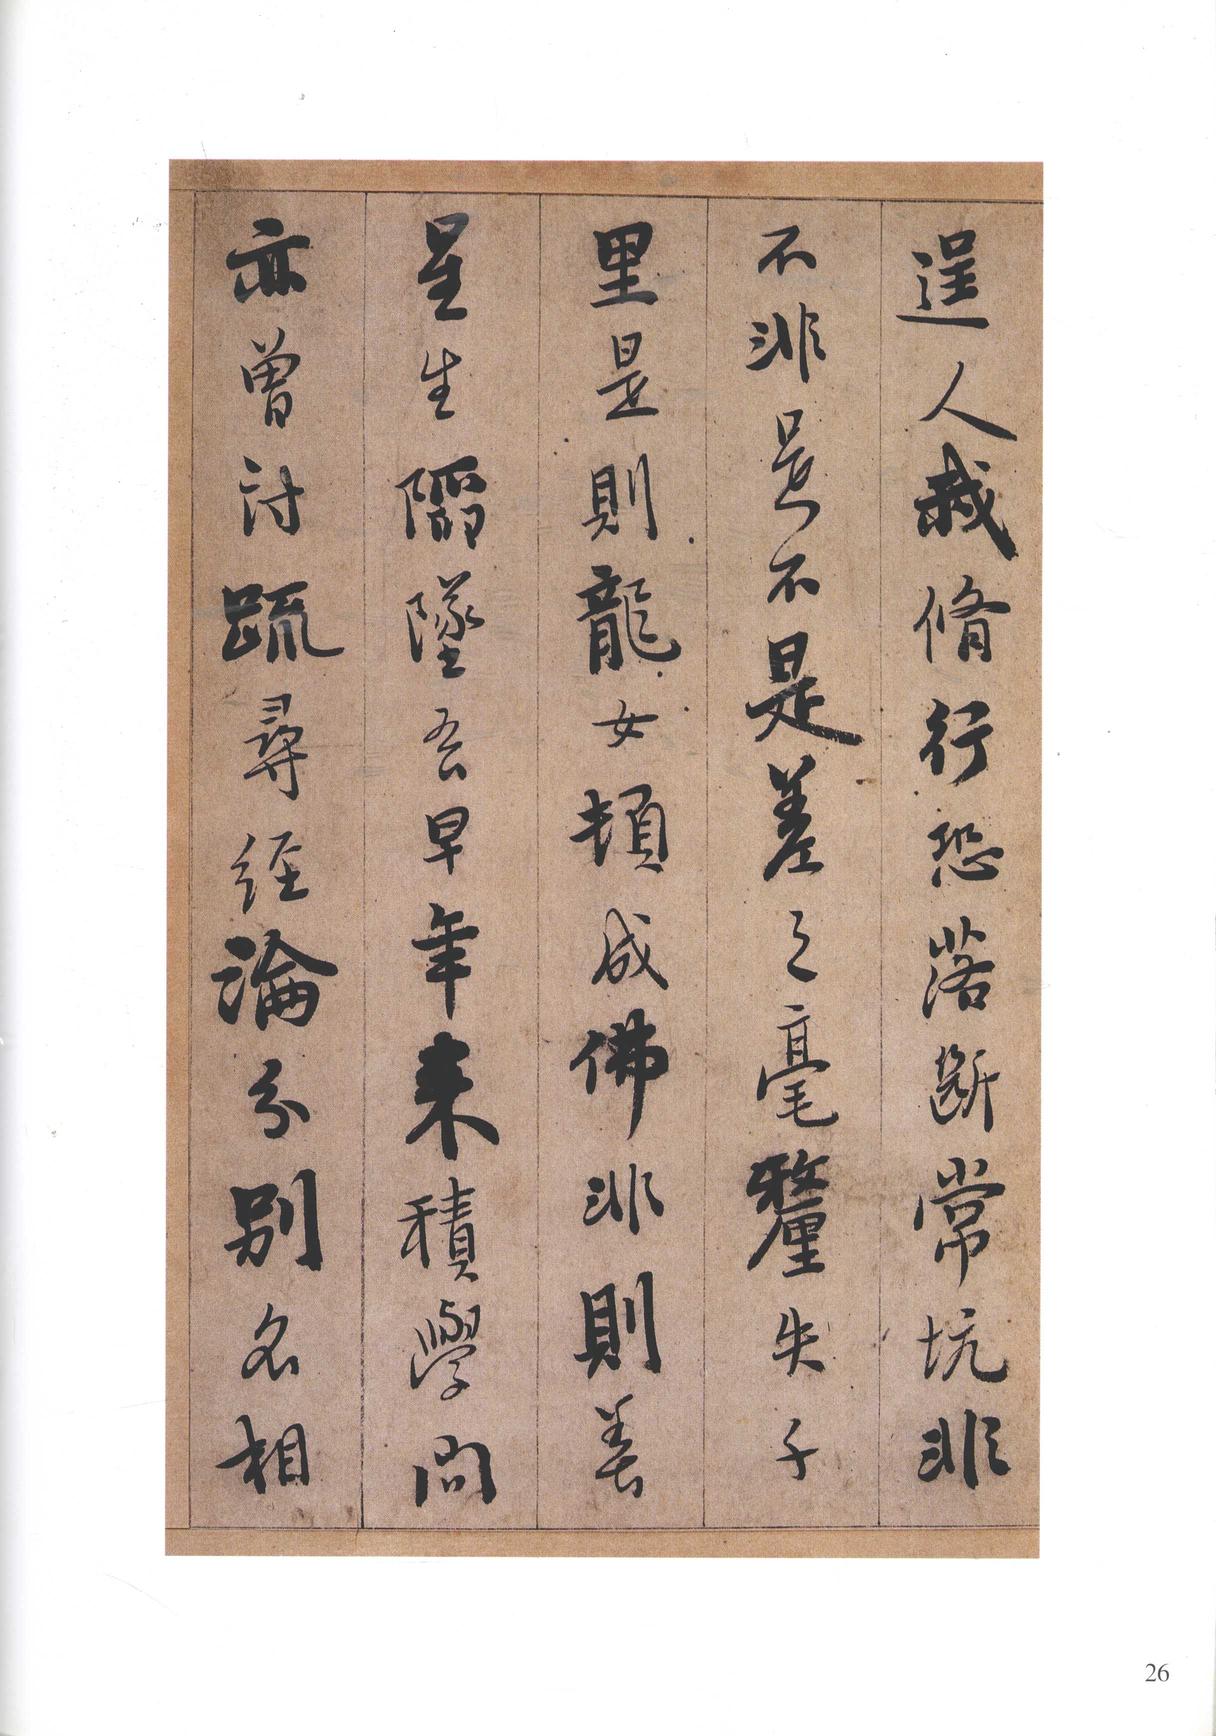 逞人我脩行恐落斷常坑非
不非是不是差之毫釐失千
里是則龍女頓成佛非則善
星生陷墜吾早年来積學問
亦曾討疏尋經論分別名相
26